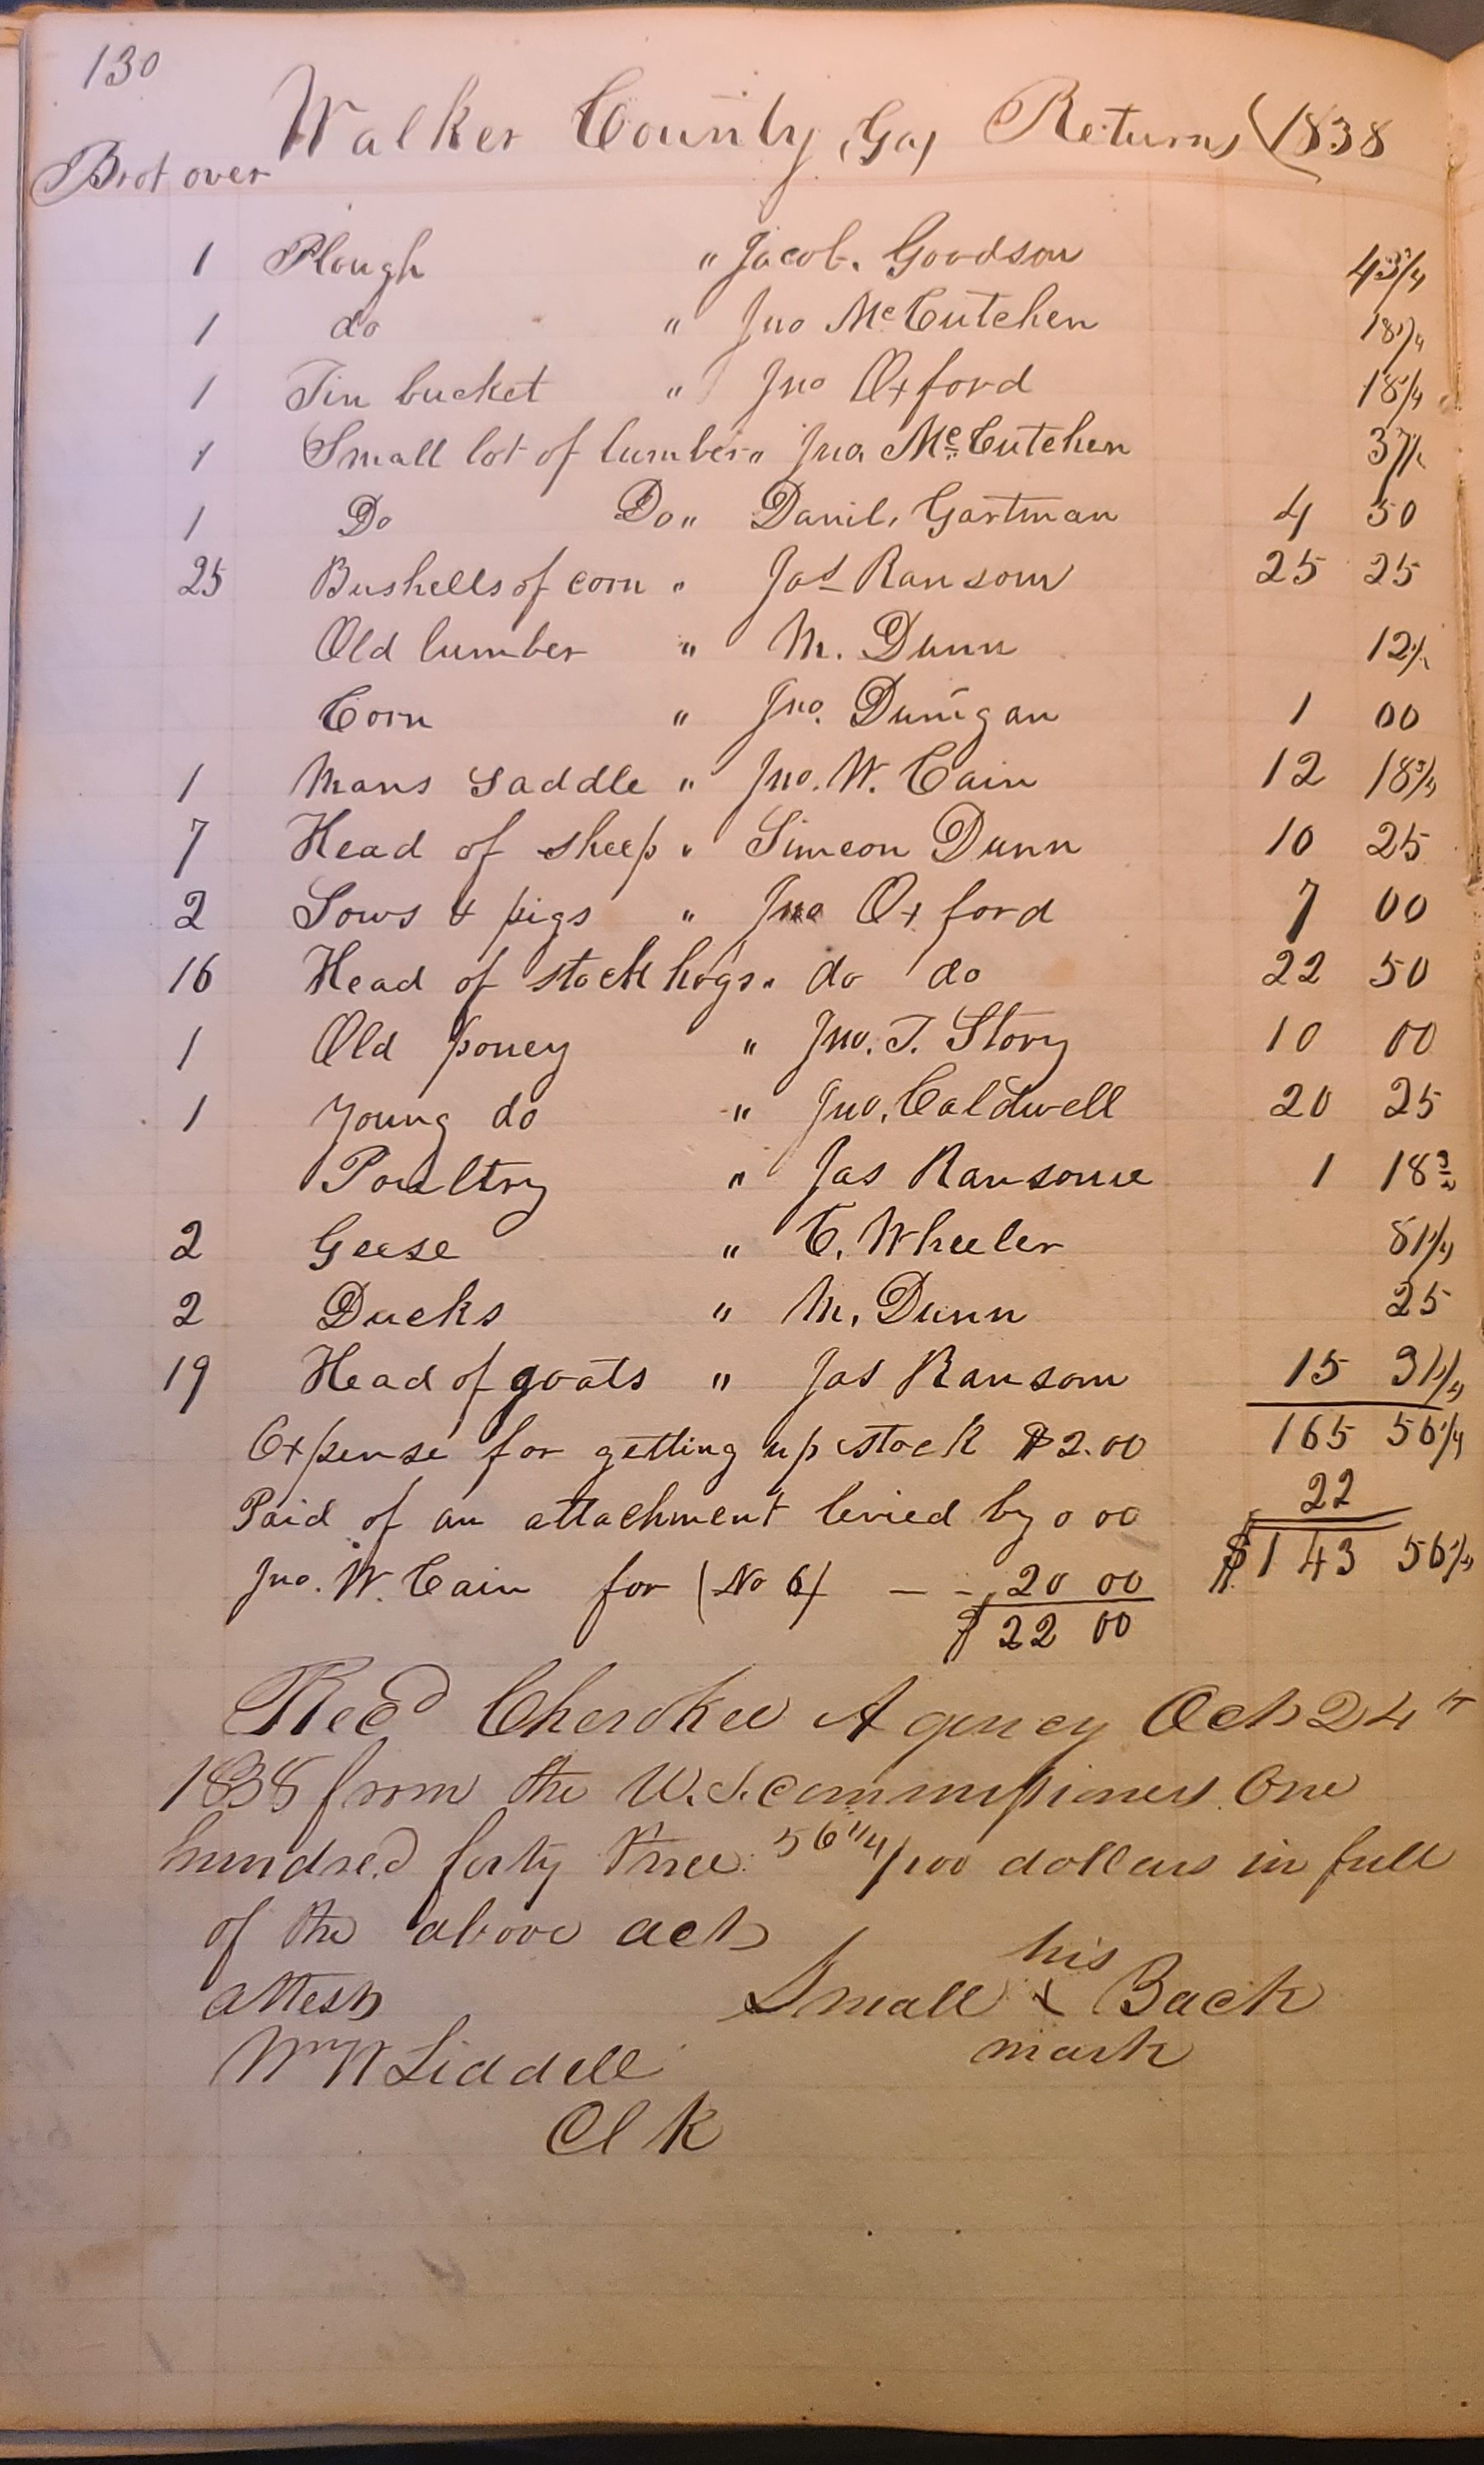 130
Walker County (Ga) Returns (1838
Brot over
1 Plough " Jacob. Goodson 43 3/4
1 do " Jno McCutchen 18 3/4
1 Tin bucket " Jno Oxford 18 3/4
1 Small lot of lumber " Jno. McCutchen 37 1/2
1 Do Do " Danil. Gartman 4 50
25 Bushells of corn " Jas Ransom 25 25
Old lumber " M. Dunn 12 1/2
Corn " Jno. Dunigan 1 00
1 Mans Saddle " Jno. W. Cain 12 18 3/4
7 Head of sheep " Simeon Dunn 10 25
2 Sows & pigs " Jno Oxford 7 00
16 Head of stock hogs " do do 22 50
1 Old poney " Jno. T. Story 10 00
1 Young do " Jno. Caldwell 20 25
Poultry " Jas Ransome 1 18 3/4
2 Geese " C. Wheeler 81 1/4
2 Ducks " M. Dunn 25
19 Head of goats " Jas Ransom 15 31 1/4
Expense for getting up stock $2.00 165 56 1/4
Paid of an attachment levied by 0 00 22
Jno. W. Cain for (No 6) – – 20 00 $143 56 1/4
$22 00
Recd Cherokee Agency Oct 24th
1838 from the U.S. commissioners One
hundred forty three 56 1/4/100 dollars in full
of the above act
attest his
Small x Back
Wm N Liddell mark
Clk